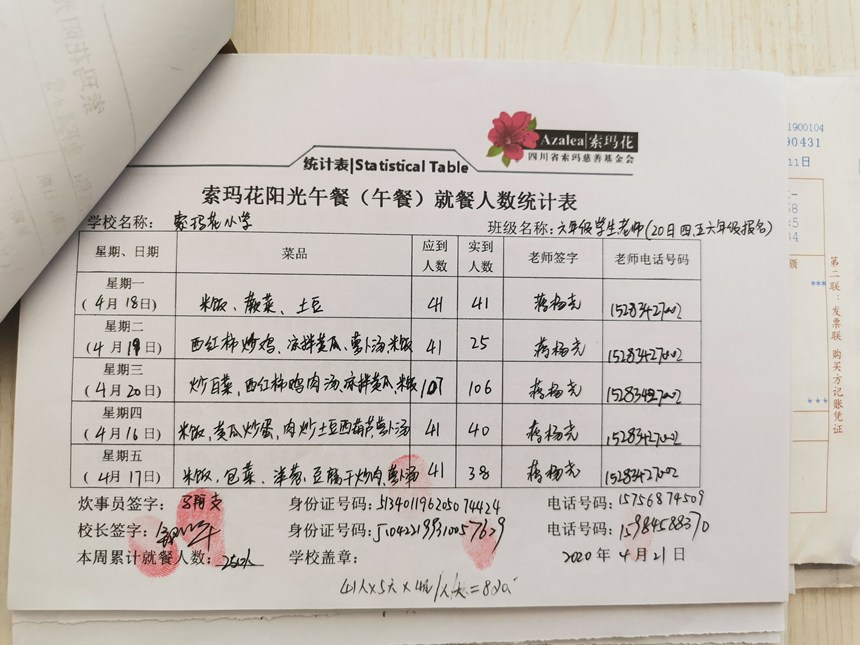 1900104
90431
11日
Azalea 索玛花
四川省索玛慈善基金会
统计表|Statistical Table
索玛花阳光午餐（午餐）就餐人数统计表
学校名称： 索玛花小学 班级名称：六年级学生老师(20日四五六年级报名)
星期、日期 菜品 应到人数 实到人数 老师签字 老师电话号码
星期一
(4月18日) 米饭、蕨菜、土豆 41 41 蒋杨光 15283427002
星期二
(4月19日) 西红柿炒鸡、凉拌黄瓜、萝卜汤、米饭 41 25 蒋杨光 15283427002
星期三
(4月20日) 炒白菜、西红柿鸡肉汤、凉拌黄瓜、米饭 107 106 蒋杨光 15283427002
星期四
(4月16日) 米饭、黄瓜炒蛋、肉炒土豆西葫芦、萝卜汤 41 40 蒋杨光 15283427002
星期五
(4月17日) 米饭、包菜、洋葱、豆腐干炒肉、萝卜汤 41 38 蒋杨光 15283427002
炊事员签字： 身份证号码：513401196205074424 电话号码：15756874509
校长签字： 身份证号码：510422199310057629 电话号码：15984588370
本周累计就餐人数：250人 学校盖章： 2020年4月21日
41人×5天×4元/人/天=820
第二联：发票联 购买方记账凭证